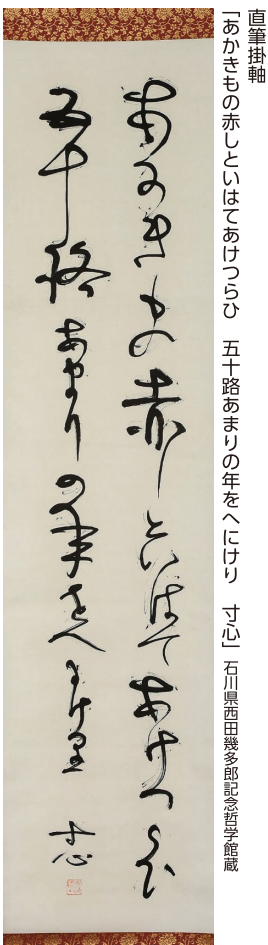 直筆掛軸
「あかきもの赤しといはてあけつらひ　五十路あまりの年をへにけり　寸心」 石川県西田幾多郎記念哲学館蔵
あかきもの赤しといはてあけつらひ
五十路あまりの年をへにけり 寸心